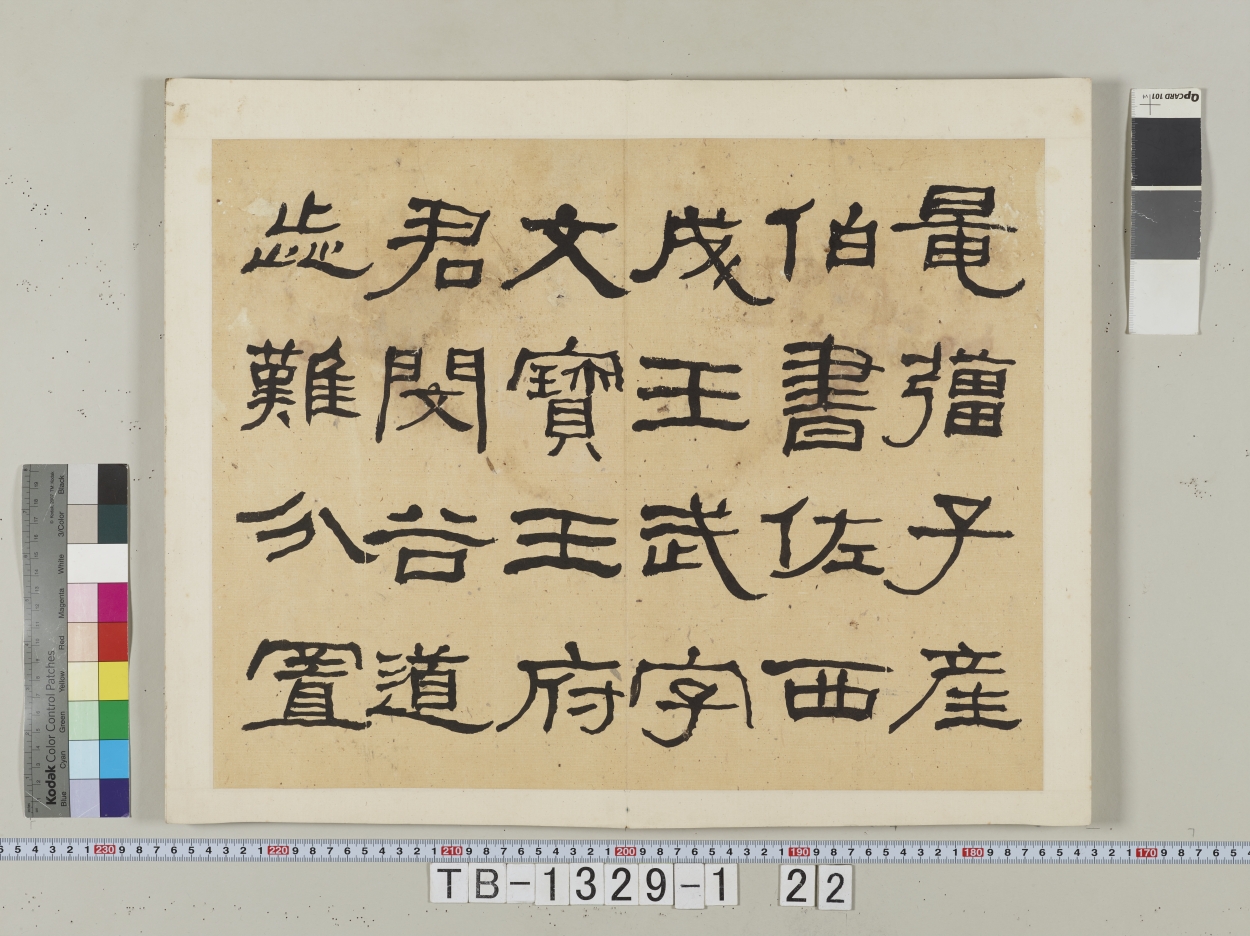 鼂彊子產
伯書佐西
成王武字
文寶王府
君閔谷道
難分置
TB-1329-1 22
Kodak Color Control Patches
Blue Cyan Green Yellow Red Magenta White 3/Color Black
QPCARD 101